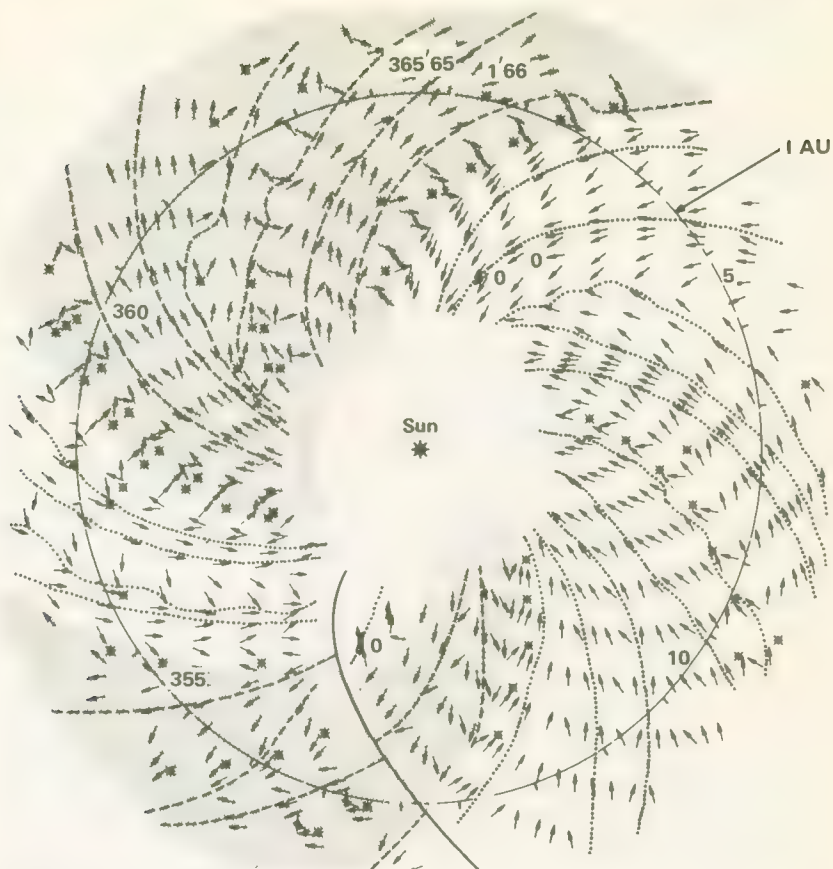 365'65
1'66
1 AU
5
0
0
360
Sun
0
10
355